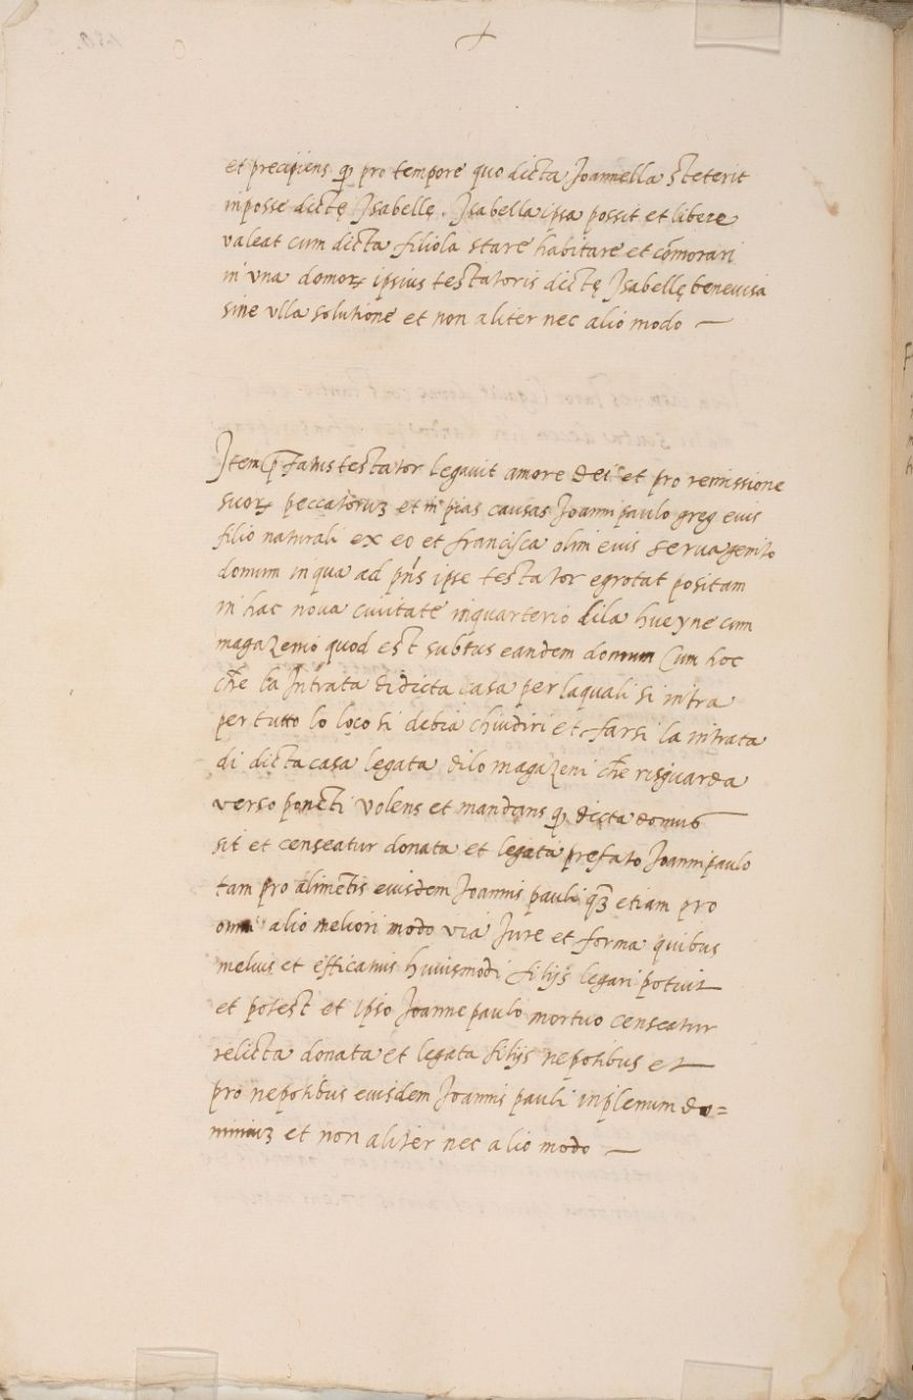 et precipiens q pro tempore quo dicta Joannella steterit
in posse dictę Isabellę. Isabella ipsa possit et libere
valeat cum dicta filiola stare habitare et cõmorari
in una domoꝝ ipsius testatoris dictę Isabellę benevisa
sine ulla solutione et non aliter nec alio modo —
Item p̃fatus testator legavit amore dei et pro remissione
suoꝝ peccatoruȝ et in pias causas Joanni paulo greg eius
filio naturali ex eo et francisca olim eius serva genito
domum in qua ad p̃ns ipse testator egrotat positam
in hac nova civitate in quarterio dila hueyne cum
magazenio quod est subtus eandem domum Cum hoc
che la Intrata di dicta casa per laquali si intra
per tutto lo loco si debia chiudiri et farsi la intrata
di dicta casa legata dilo magazeni che risguarda
verso poncti volens et mandans q dicta domus
sit et censeatur donata et legata prefato Joanni paulo
tam pro alimẽtis eiusdem Joannis pauli qȝ etiam pro
omni alio meliori modo via Jure et forma quibus
melius et efficatius huiusmodi filijs legari potuit
et potest et ipso Joanne paulo mortuo censeatur
relicta donata et legata filijs nepotibus et
pro nepotibus eiusdem Joannis pauli in plenum do=
miniuȝ et non aliter nec alio modo —